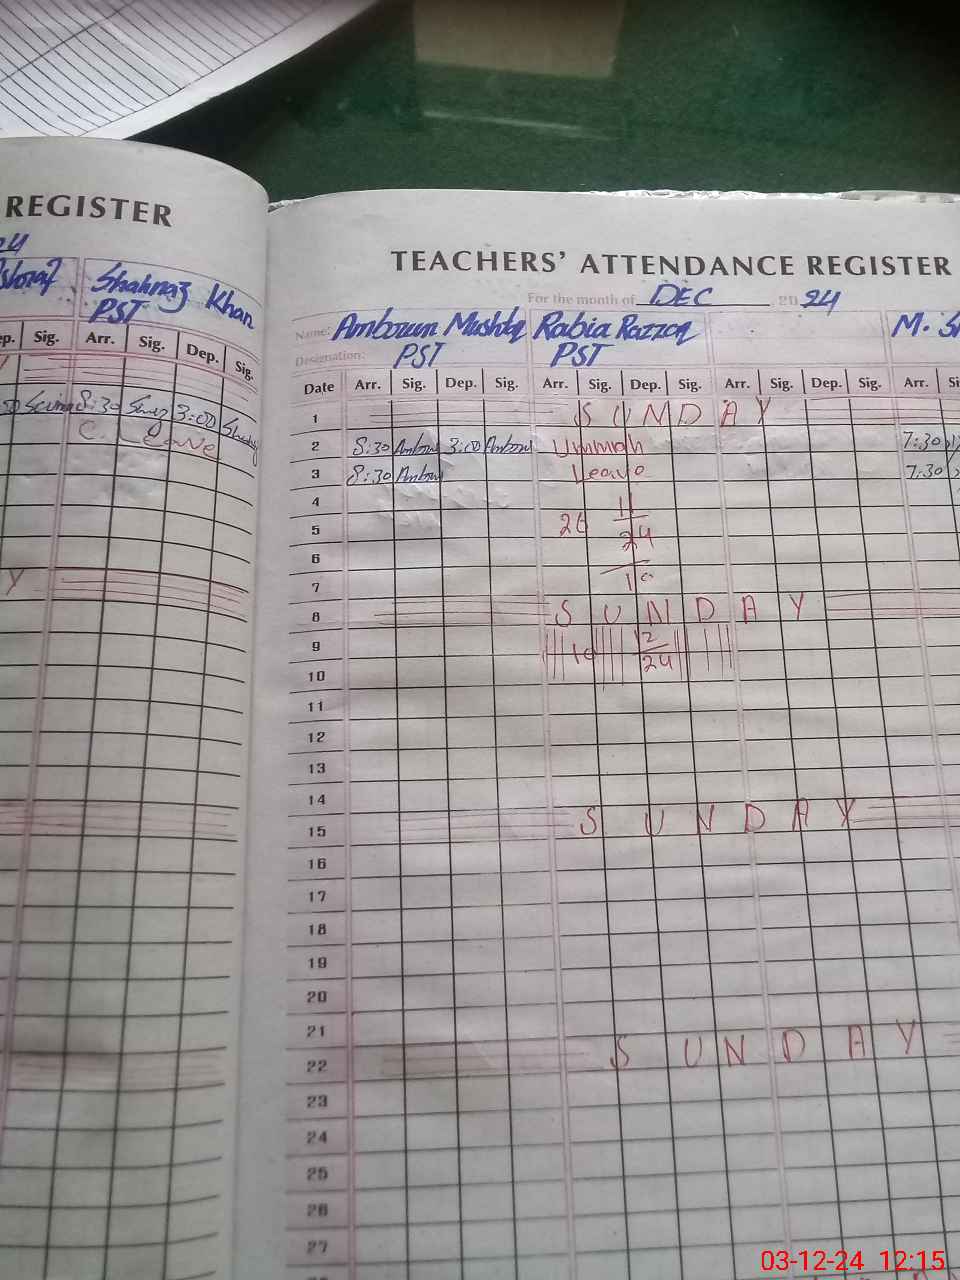 REGISTER
24
Shahnaz Khan
PST
ep. Sig. Arr. Sig. Dep. Sig.
Y
8:30 3:00
C. Leave
Y
TEACHERS' ATTENDANCE REGISTER
For the month of DEC 2024
Name: Ambreen Mushtaq Rabia Razzaq M.
Designation: PST PST
Date Arr. Sig. Dep. Sig. Arr. Sig. Dep. Sig. Arr. Sig. Dep. Sig. Arr.
1 SUNDAY
2 8:30 3:00 Ummrah 7:30
3 8:30 Leave 7:30
4
5 26 11
24
6
7
8 SUNDAY
9 12
10 24
11
12
13
14
15 SUNDAY
16
17
18
19
20
21
22 SUNDAY
23
24
25
26
27
03-12-24 12:15